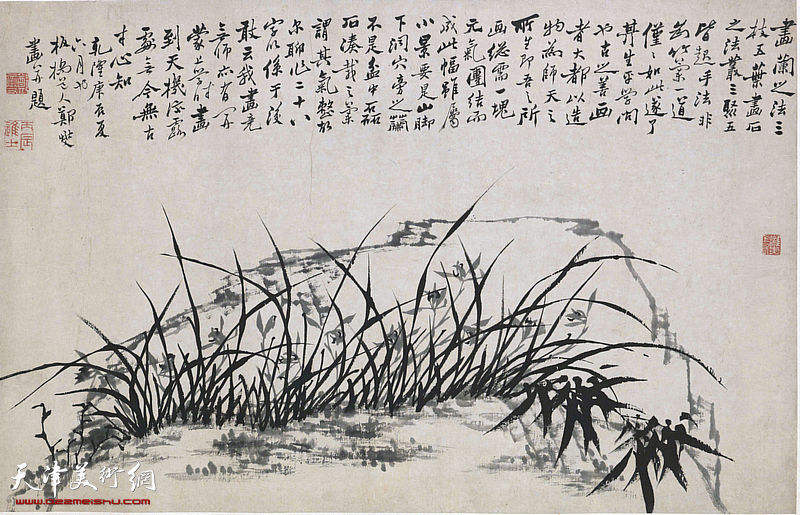 畫蘭之法三
枝五葉畫石
之法叢三聚五
皆起手法非
為竹蘭一道
僅僅如此遂了
其生平學問
也古之善畫
者大都以造
物為師天之
所生即吾之所
画總需一塊
元氣團結而
成此幅雖屬
小景要是山脚
下洞穴旁之蘭
不是盆中磊
石湊栽之蘭
謂其氣整故
尔聊作二十八
字以係于後
敢云我畫竟
無師亦有開
蒙上學時畫
到天機流露
處無今無古
寸心知
乾隆庚辰夏
六月初
板橋老人鄭燮
畫并題
丙辰進士
天津美術網
www.022meishu.com